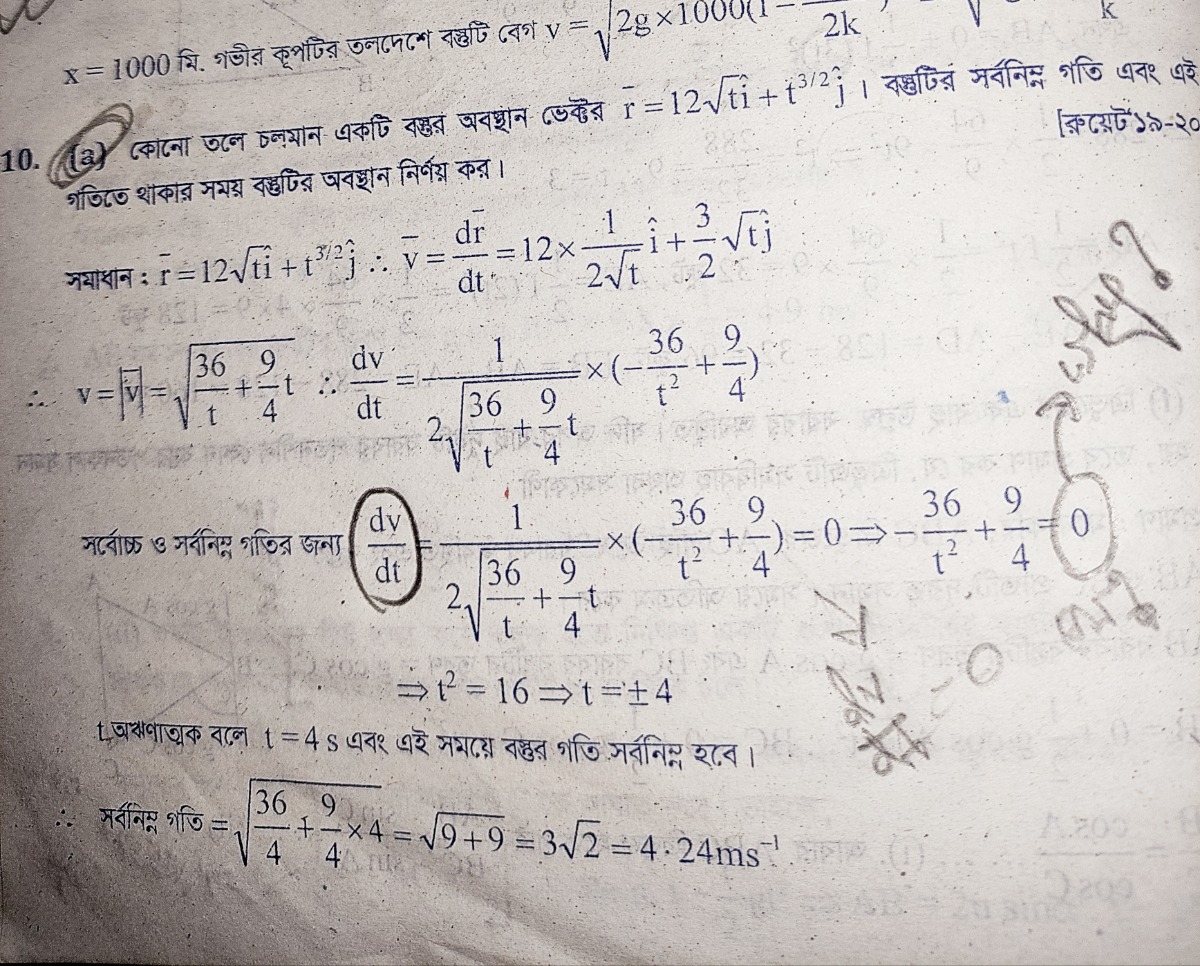 x = 1000 মি. গভীর কূপটির তলদেশে বস্তুটি বেগ v = √2g×1000(1 − 2k k
10. (a) কোনো তলে চলমান একটি বস্তুর অবস্থান ভেক্টর r̄ = 12√t î + t^3/2 ĵ । বস্তুটির সর্বনিম্ন গতি এবং এই
গতিতে থাকার সময় বস্তুটির অবস্থান নির্ণয় কর। [রুয়েট'১৯-২০
সমাধান : r̄ = 12√t î + t^3/2 ĵ ∴ v̄ = dr̄/dt = 12 × 1/2√t î + 3/2 √t ĵ
∴ v = |v̄| = √(36/t + 9/4 t) ∴ dv/dt = 1/(2√(36/t + 9/4 t)) × (−36/t² + 9/4)
সর্বোচ্চ ও সর্বনিম্ন গতির জন্য dv/dt = 1/(2√(36/t + 9/4 t)) × (−36/t² + 9/4) = 0 ⇒ −36/t² + 9/4 = 0
⇒ t² = 16 ⇒ t = ± 4
t অঋণাত্মক বলে t = 4 s এবং এই সময়ে বস্তুর গতি সর্বনিম্ন হবে।
∴ সর্বনিম্ন গতি = √(36/4 + 9/4 × 4) = √(9 + 9) = 3√2 = 4·24ms⁻¹